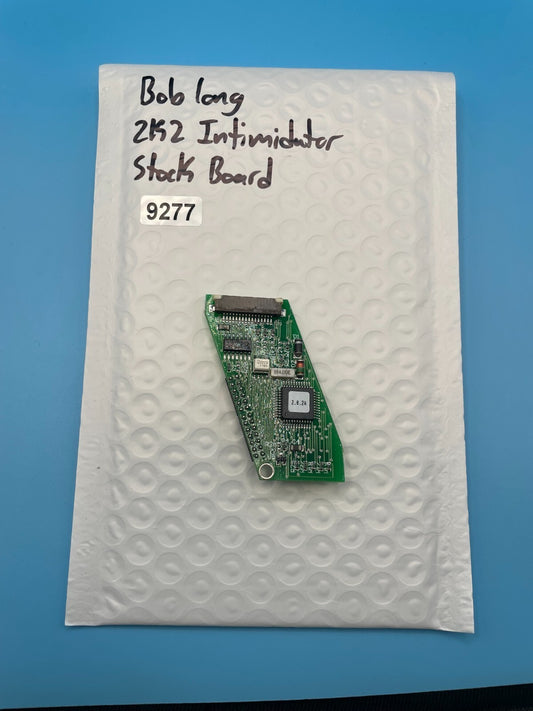 Bob long
2K2 Intimidator
Stock Board
9277
2.0.2A